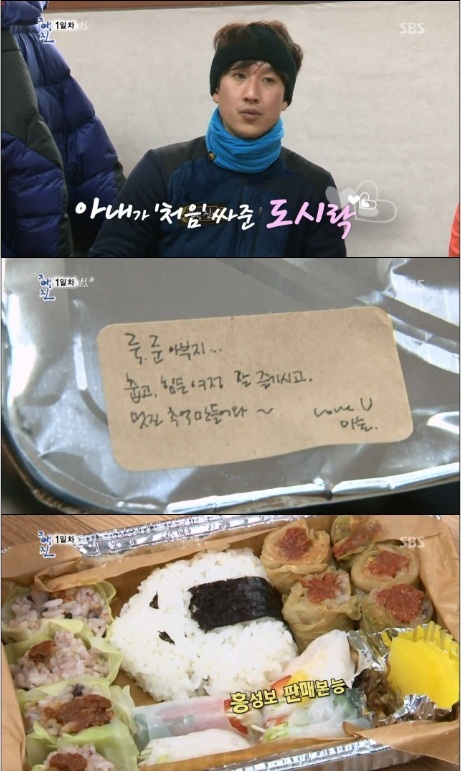 1일차
SBS
아내가 '처음' 싸준 도시락
1일차
룩, 준 아부지...
춥고, 힘든 여정 잘 즐기시고,
멋진 추억 만들어다 ~
Love U
1일차
SBS
홍성보 판매본능